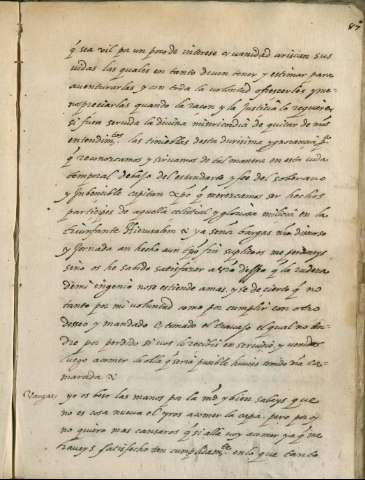 87
q̃ sea vil pa un poco de interese o vanidad ariscan sus
vidas las quales en tanto deven tener y estimar para
aventurarlas y con toda la voluntad ofrescerlas y me
nospreciarlas quando la razon y la Justicia lo requiere
si fuera servida la divina misericordia de quitar de nr̃os
entendimtos las tinieblas desta
q̃ reconozcamos y sirvamos de tal manera en esta vida
temporal debajo del estandarte y fee del soberano
y Inbencible capitan xp̃o q̃ merezcamos ser hechos
participes de aquella celestial y gloriosa milicia en la
triunfante Hierusalen & ya señor bargas nr̃o discurso
y Jornada an hecho aun tpõ fin suplicoos me perdoneys
sino os he sabido satisfazer a vr̃o desseo q̃ la rudeza
de mi ingenio no se estiende a mas, y se de cierto q̃ no
tanto por mi voluntad como por cumplir con vr̃o
deseo y mandado e tomado el travajo el qual no ten
dre por perdido si vos lo recibis en servicio y
luego a comer la olla q̃ sera posible
marada &
Vargas: yo os beso las manos por la md̃ y bien sabeys que
no es cosa nueva el yros a comer la capa, pero por oy
no quiero mas cansaros q̃ si alla voy a comer ya q̃ me
haveys satisfecho tan cumplidamte en lo que tanto